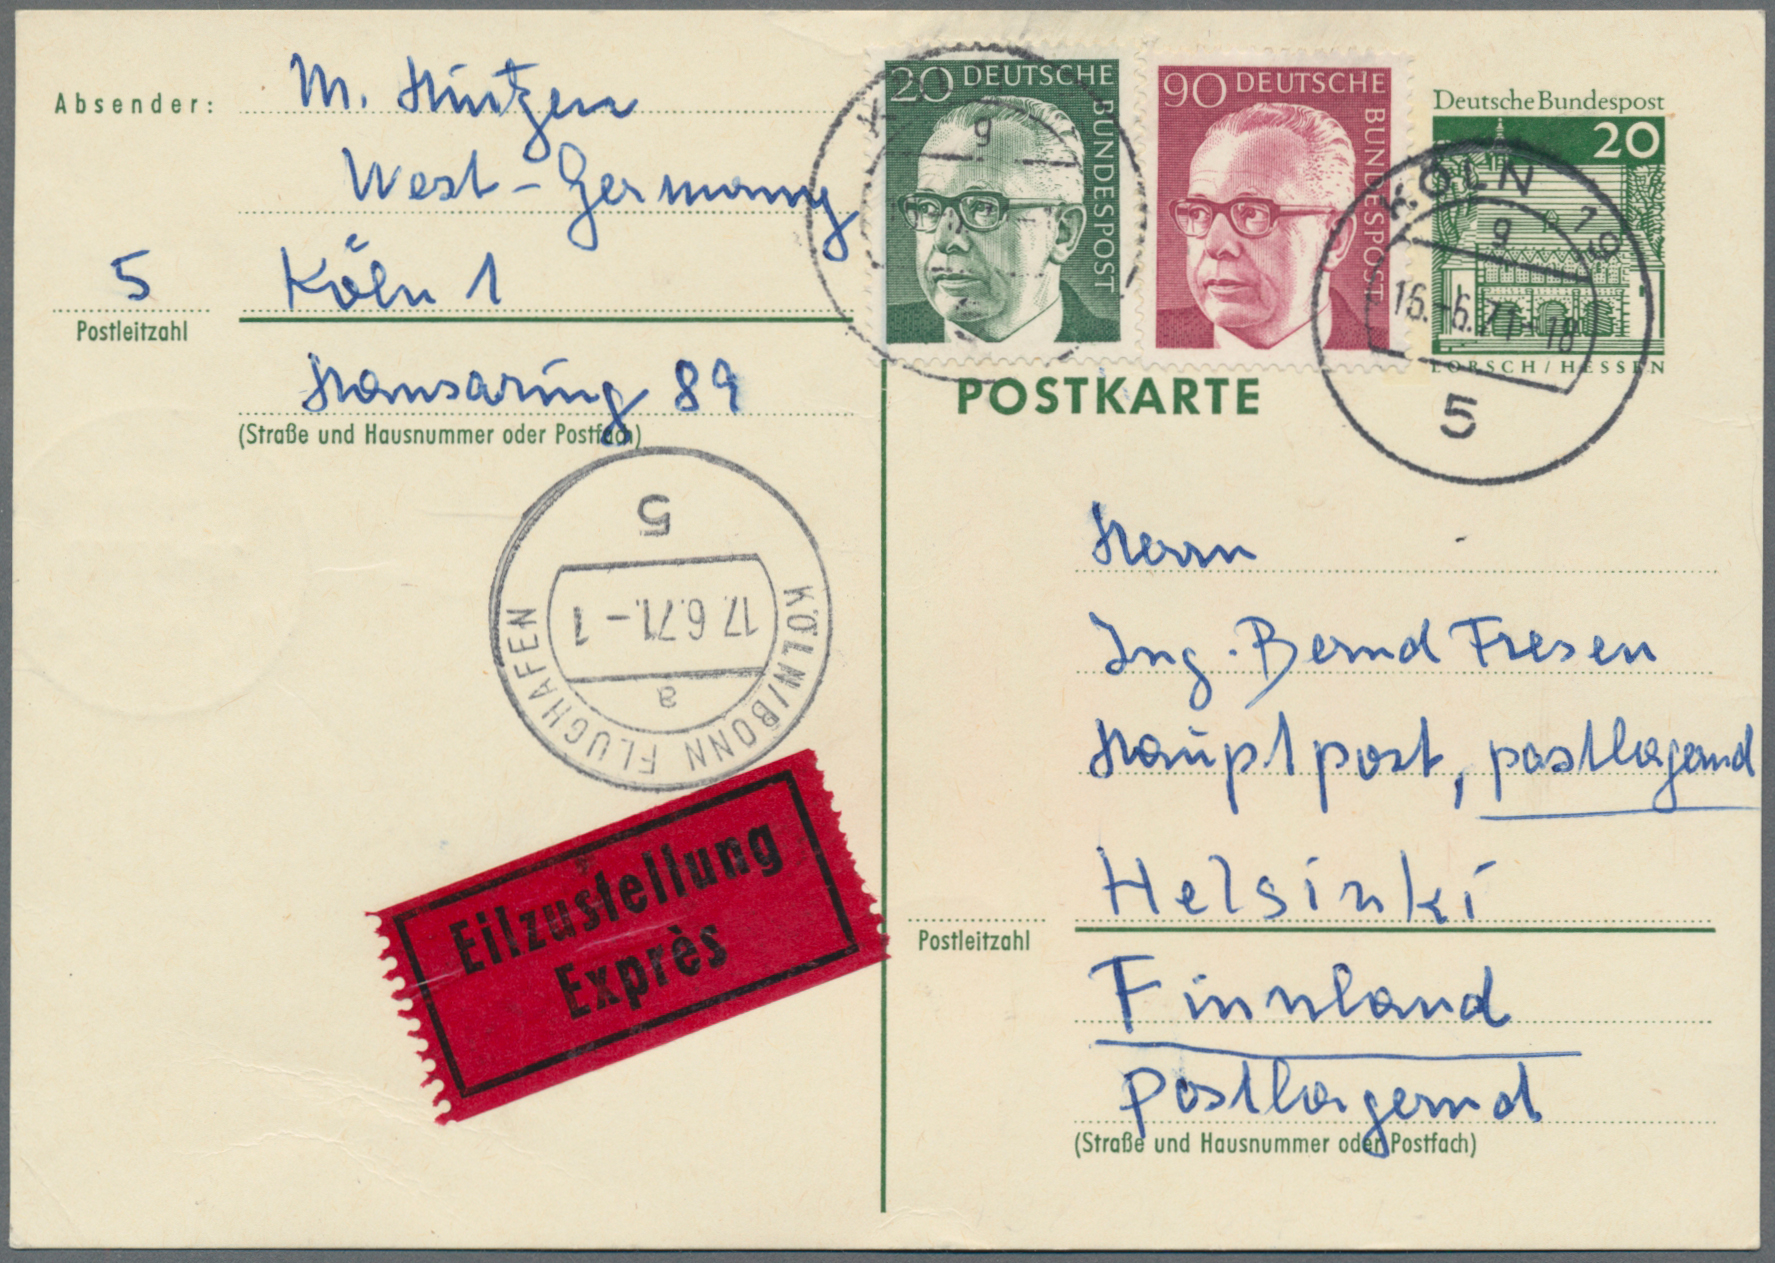 Absender:
M. Hintzen
West-Germany
5 Köln 1
Postleitzahl
Hansaring 89
(Straße und Hausnummer oder Postfach)
20 DEUTSCHE
BUNDESPOST
90 DEUTSCHE
BUNDESPOST
Deutsche Bundespost
20
LORSCH/HESSEN
g
KÖLN
g
16.-6.71-18
5
POSTKARTE
5
17.6.71.-1
a
KÖLN/BONN FLUGHAFEN
Eilzustellung
Exprès
Herrn
Ing. Bernd Fresen
Hauptpost, postlagernd
Helsinki
Postleitzahl
Finnland
postlagernd
(Straße und Hausnummer oder Postfach)